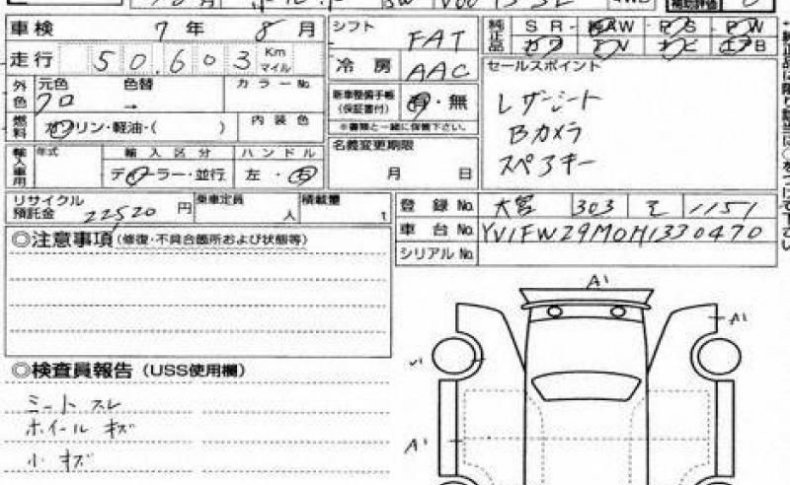 車検 7年 8月
シフト FAT
純正品 SR AW PS PW
カワ TV ナビ エアB
走行 50,603 Km マイル
冷房 AAC
セールスポイント
外色 元色 色替 カラーNo.
クロ →
新車整備手帳(保証書付) 有・無
※書類と一緒に保管下さい。
レザーシート
Bカメラ
スペアキー
燃料 ガソリン・軽油・( ) 内装色
名義変更期限
月 日
輸入車用 年式 輸入区分 ハンドル
ディーラー・並行 左・右
リサイクル預託金 22520円 乗車定員 人 積載量 t
登録No. 大宮 303 そ 1151
車台No. YV1FW29M0H1330470
シリアルNo.
◎注意事項(修復・不具合箇所および状態等)
A1
A1
◎検査員報告(USS使用欄)
シート スレ
ホイール キズ
小キズ
A1